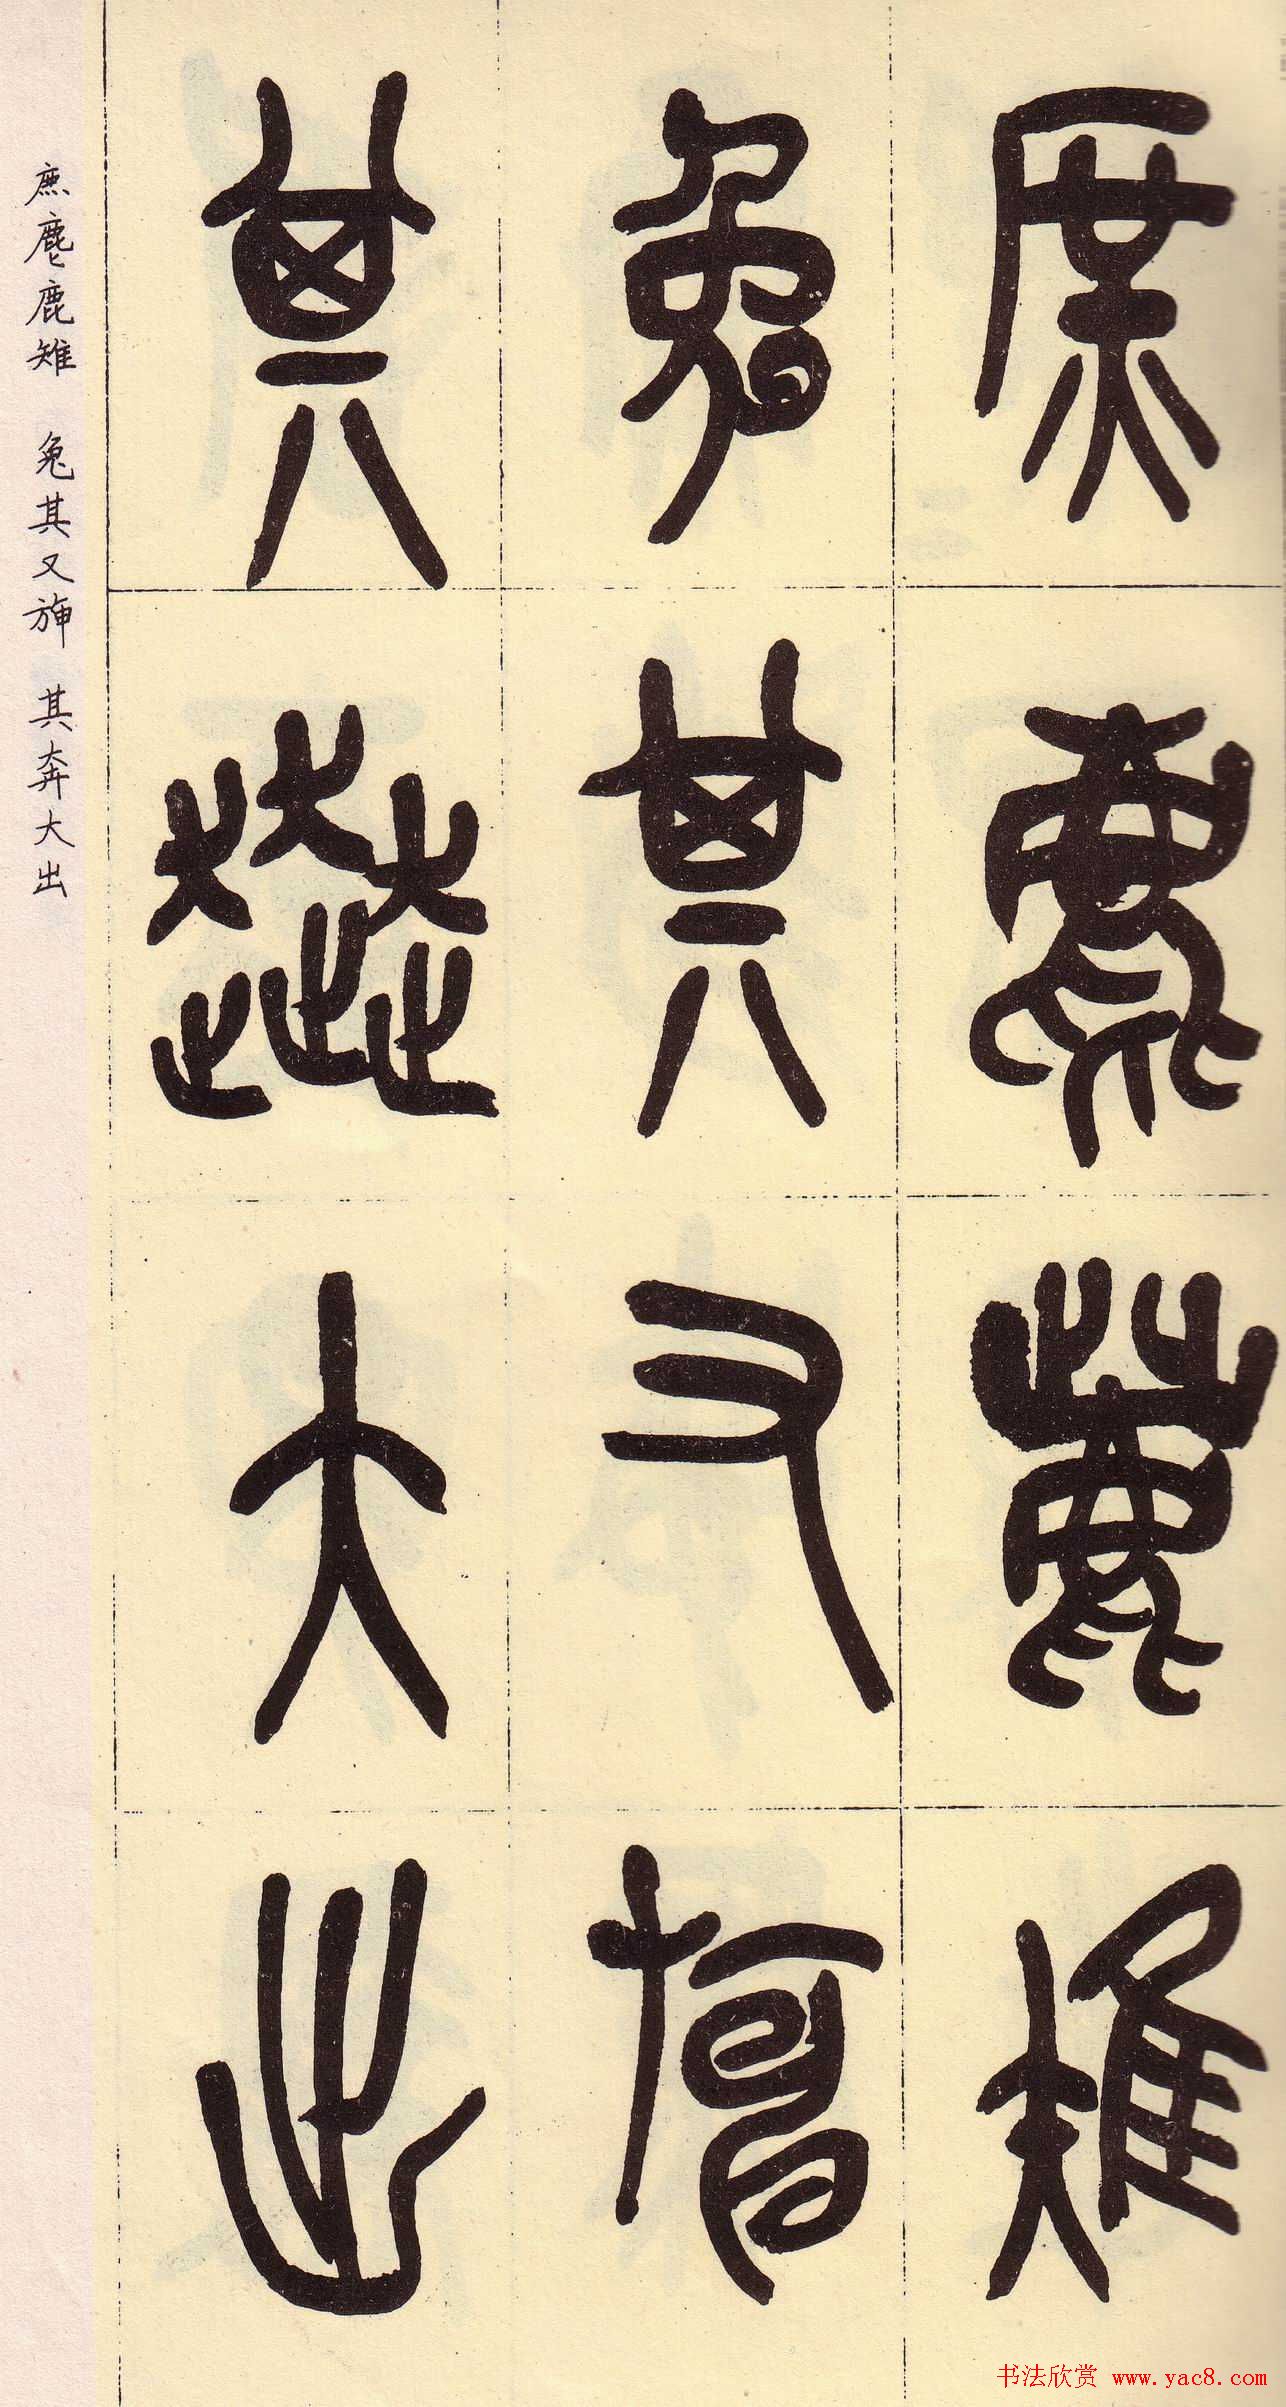 庶麀鹿雉
兔其又
其奔大出
庶麀鹿雉 兔其又 其奔大出
书法欣赏 www.yac8.com